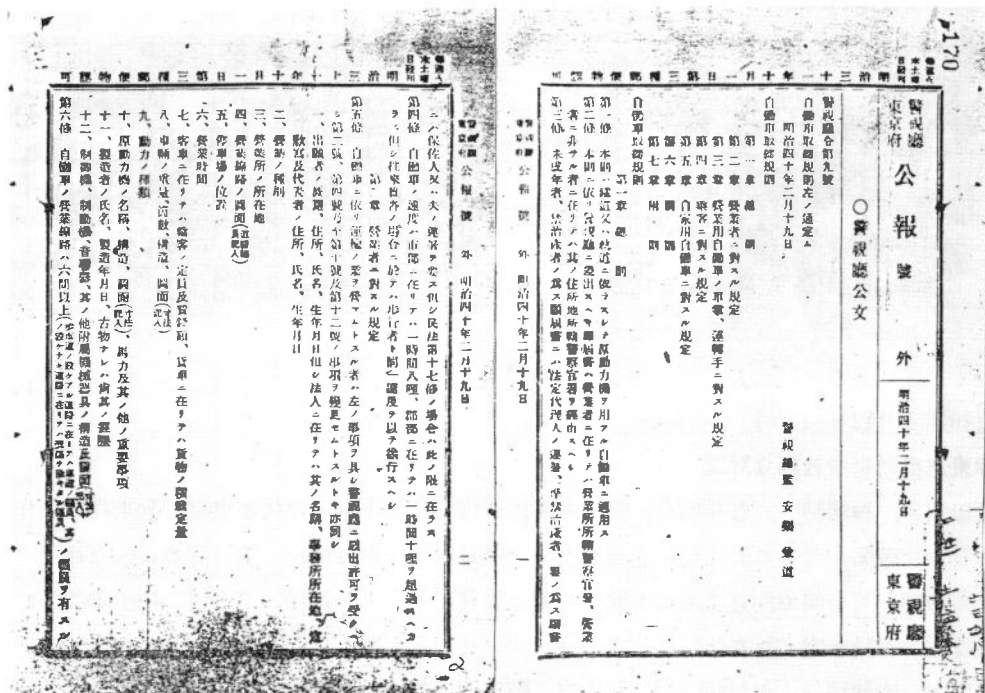 170
警視廳
東京府
公報
號外
明治四十年二月十九日
警視廳
東京府
○警視廳公文
警視廳令第九號
自働車取締規則左ノ通定ム
明治四十年二月十九日
警視總監 安樂兼道
自働車取締規則
第一章 總則
第二章 營業者ニ對スル規定
第三章 營業用自働車ノ車掌、運轉手ニ對スル規定
第四章 乘客ニ對スル規定
第五章 自家用自働車ニ對スル規定
第六章 罰則
第七章 附則
自働車取締規則
第一章 總則
第一條 本則ハ鐵道又ハ軌道ニ依ラスシテ原動力機ヲ用フル自働車ニ適用ス
第二條 本則ニ依リ警視廳ニ差出スヘキ願屆書ハ營業者ニ在リテハ營業所所轄警察官署、營業
者ニ非サル者ニ在リテハ其ノ住所地所轄警察官署ヲ經由スヘシ
第三條 未成年者、禁治產者ノ爲ス願屆書ニハ法定代理人ノ連署、準禁治產者、妻ノ爲ス願屆
警視廳 東京府 公報 號外 明治四十年二月十九日
一
警視廳 東京府 公報 號外 明治四十年二月十九日
二
ニハ保佐人又ハ夫ノ連署ヲ要ス但シ民法第十七條ノ場合ハ此ノ限ニ在ラス
第四條 自働車ノ速度ハ市部ニ在リテハ一時間八哩、郡部ニ在リテハ一時間十哩ヲ超過スヘカ
ラス但シ往來雜沓ノ場合ニ於テハ步行者ト同一速度ヲ以テ徐行スヘシ
第二章 營業者ニ對スル規定
第五條 自働車ニ依リ運輸ノ業ヲ營マムトスル者ハ左ノ事項ヲ具シ警視廳ニ願出許可ヲ受クヘ
シ第二號、第四號乃至第十號及第十二號ノ事項ヲ變更セムトスルトキ亦同シ
一、出願者ノ族籍、住所、氏名、生年月日但シ法人ニ在リテハ其ノ名稱、事務所所在地、定
款寫及代表者ノ住所、氏名、生年月日
二、營業ノ種別
三、營業所ノ所在地
四、營業線路ノ圖面
五、停車場ノ位置
六、營業時間
七、客車ニ在リテハ乘客ノ定員及賃錢額、貨車ニ在リテハ貨物ノ積載定量
八、車輛ノ重量、箇數、構造、圖面(寸法記入)
九、動力ノ種類
十、原動力機ノ名稱、構造、圖面(寸法記入)馬力及其ノ他ノ重要事項
十一、製造者ノ氏名、製造年月日、古物ナレハ尙其ノ經歷
十二、制御機、制動機、音響器、其ノ他附屬機械器具ノ構造及圖面
第六條 自働車ノ營業線路ハ六間以上ノ幅員ヲ有スル
2